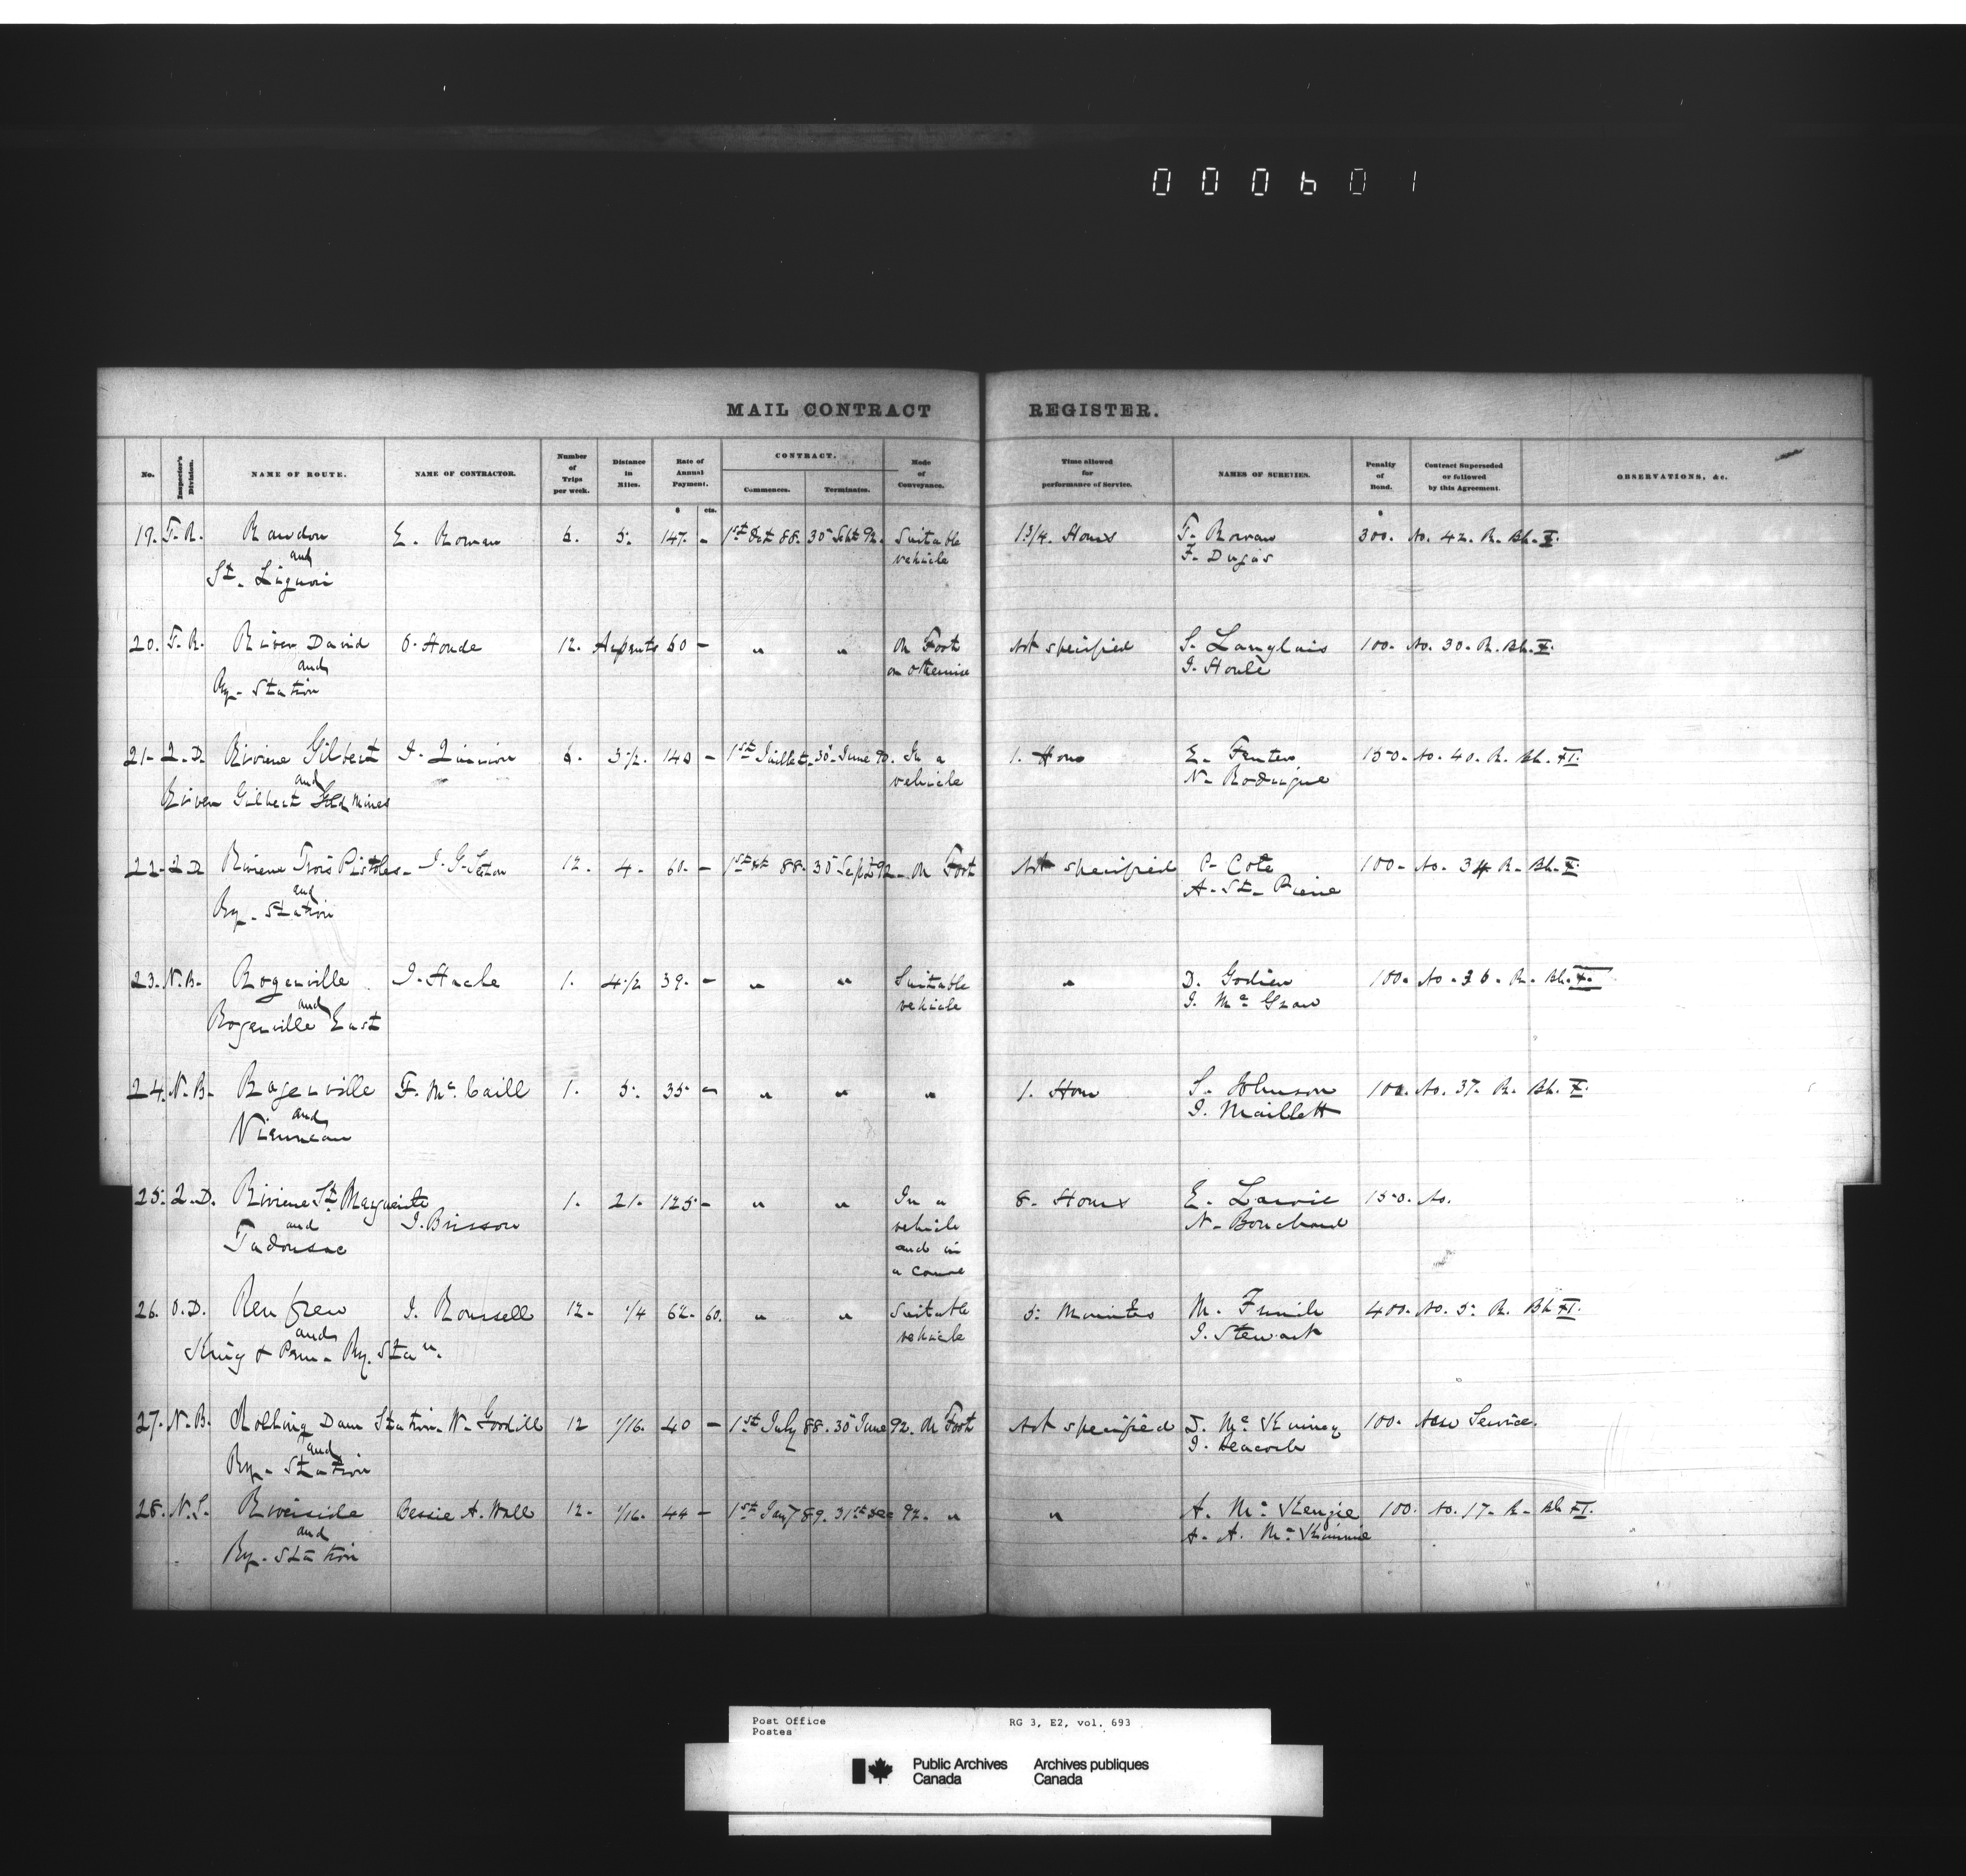 000601
MAIL CONTRACT REGISTER.
No. Inspector's Division. NAME OF ROUTE. NAME OF CONTRACTOR. Number of Trips per week. Distance in Miles. Rate of Annual Payment. CONTRACT. Commences. Terminates. Mode of Conveyance. Time allowed for performance of Service. NAMES OF SURETIES. Penalty of Bond. Contract Superseded or followed by this Agreement. OBSERVATIONS, &c.
$ cts. $
19. T.R. Rawdon E. Rowan 6. 5. 147. - 1st Oct 88. 30 Sept 92. Suitable 1 3/4. Hours T. Rowan 300. No. 42. R. Bk. X.
and vehicle F. Dugas
St. Liguori
20. T.R. River David O. Houde 12. Arpents 60 - " " On Foot Not specified S. Langlais 100. No. 30. R. Bk. X.
and or otherwise J. Houle
Ry. Station
21. Q.D. Riviere Gilbert 6. 3 1/2. 140 - 30 June 90. In a 1. Hour E. 150. No. 40. R. Bk. XI.
and vehicle N. Rodrigue
River Gilbert Gold Mines
22. Q.D. Riviere Trois Pistoles. 12. 4. 60. - 1st Oct 88. 30 Sept 92. On Foot Not specified P. Cote 100. No. 34 R. Bk. X.
and A. St. Pierre
Ry. Station
23. N.B. Rogerville J. Hache 1. 4 1/2 39. - " " Suitable " D. Godien 100. No. 36. R. Bk. X.
and vehicle J. Mc Graw
Rogerville East
24. N.B. Rogerville F. Mc Caill 1. 5. 35 - " " " 1. Hour S. Johnson 100. No. 37. R. Bk. X.
and J. Maillett
Vienneau
25. Q.D. Riviere St. Marguerite 1. 21. 125 - " " In a 8. Hours E. 150. No.
and J. Brisson vehicle N. Bouchard
Tadousac and in
a canoe
26. O.D. Renfrew J. Roussell 12. 1/4 62. 60. " " Suitable 5. Minutes M. 400. No. 5. R. Bk XI.
and vehicle J. Stewart
King & Pem. Ry. Stan.
27. N.B. Rolling Dam Station. W. Goodill 12 1/16. 40 - 1st July 88. 30 June 92. On Foot Not specified 100. New Service.
and J.
Ry. Station
28. N.S. Riverside Bessie A. Wall 12. 1/16. 44 - 1st Jany 89. 31st Dec 92. " " A. Mc Kenzie 100. No. 17. R. Bk XI.
and A. A. Mc Kinnie
Ry. Station
Post Office RG 3, E2, vol. 693
Postes
Public Archives Archives publiques
Canada Canada